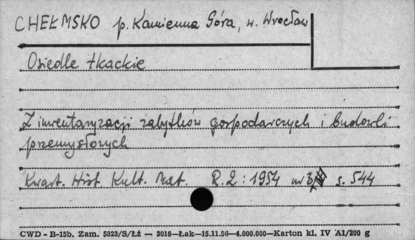 CHEŁMSKO p. Kamienna Góra, w. Wrocław
Osiedle tkackie
Z inwentaryzacji zabytków gospodarczych i budowli
przemysłowych
Kwart. Hist. Kult. Mat. R. 2 : 1954 nr 3 s. 544
CWD - B-15b. Zam. 5323/S/Łź — 3016—Łak—15.11.56—4.000.000—Karton kl. IV A1/200 g